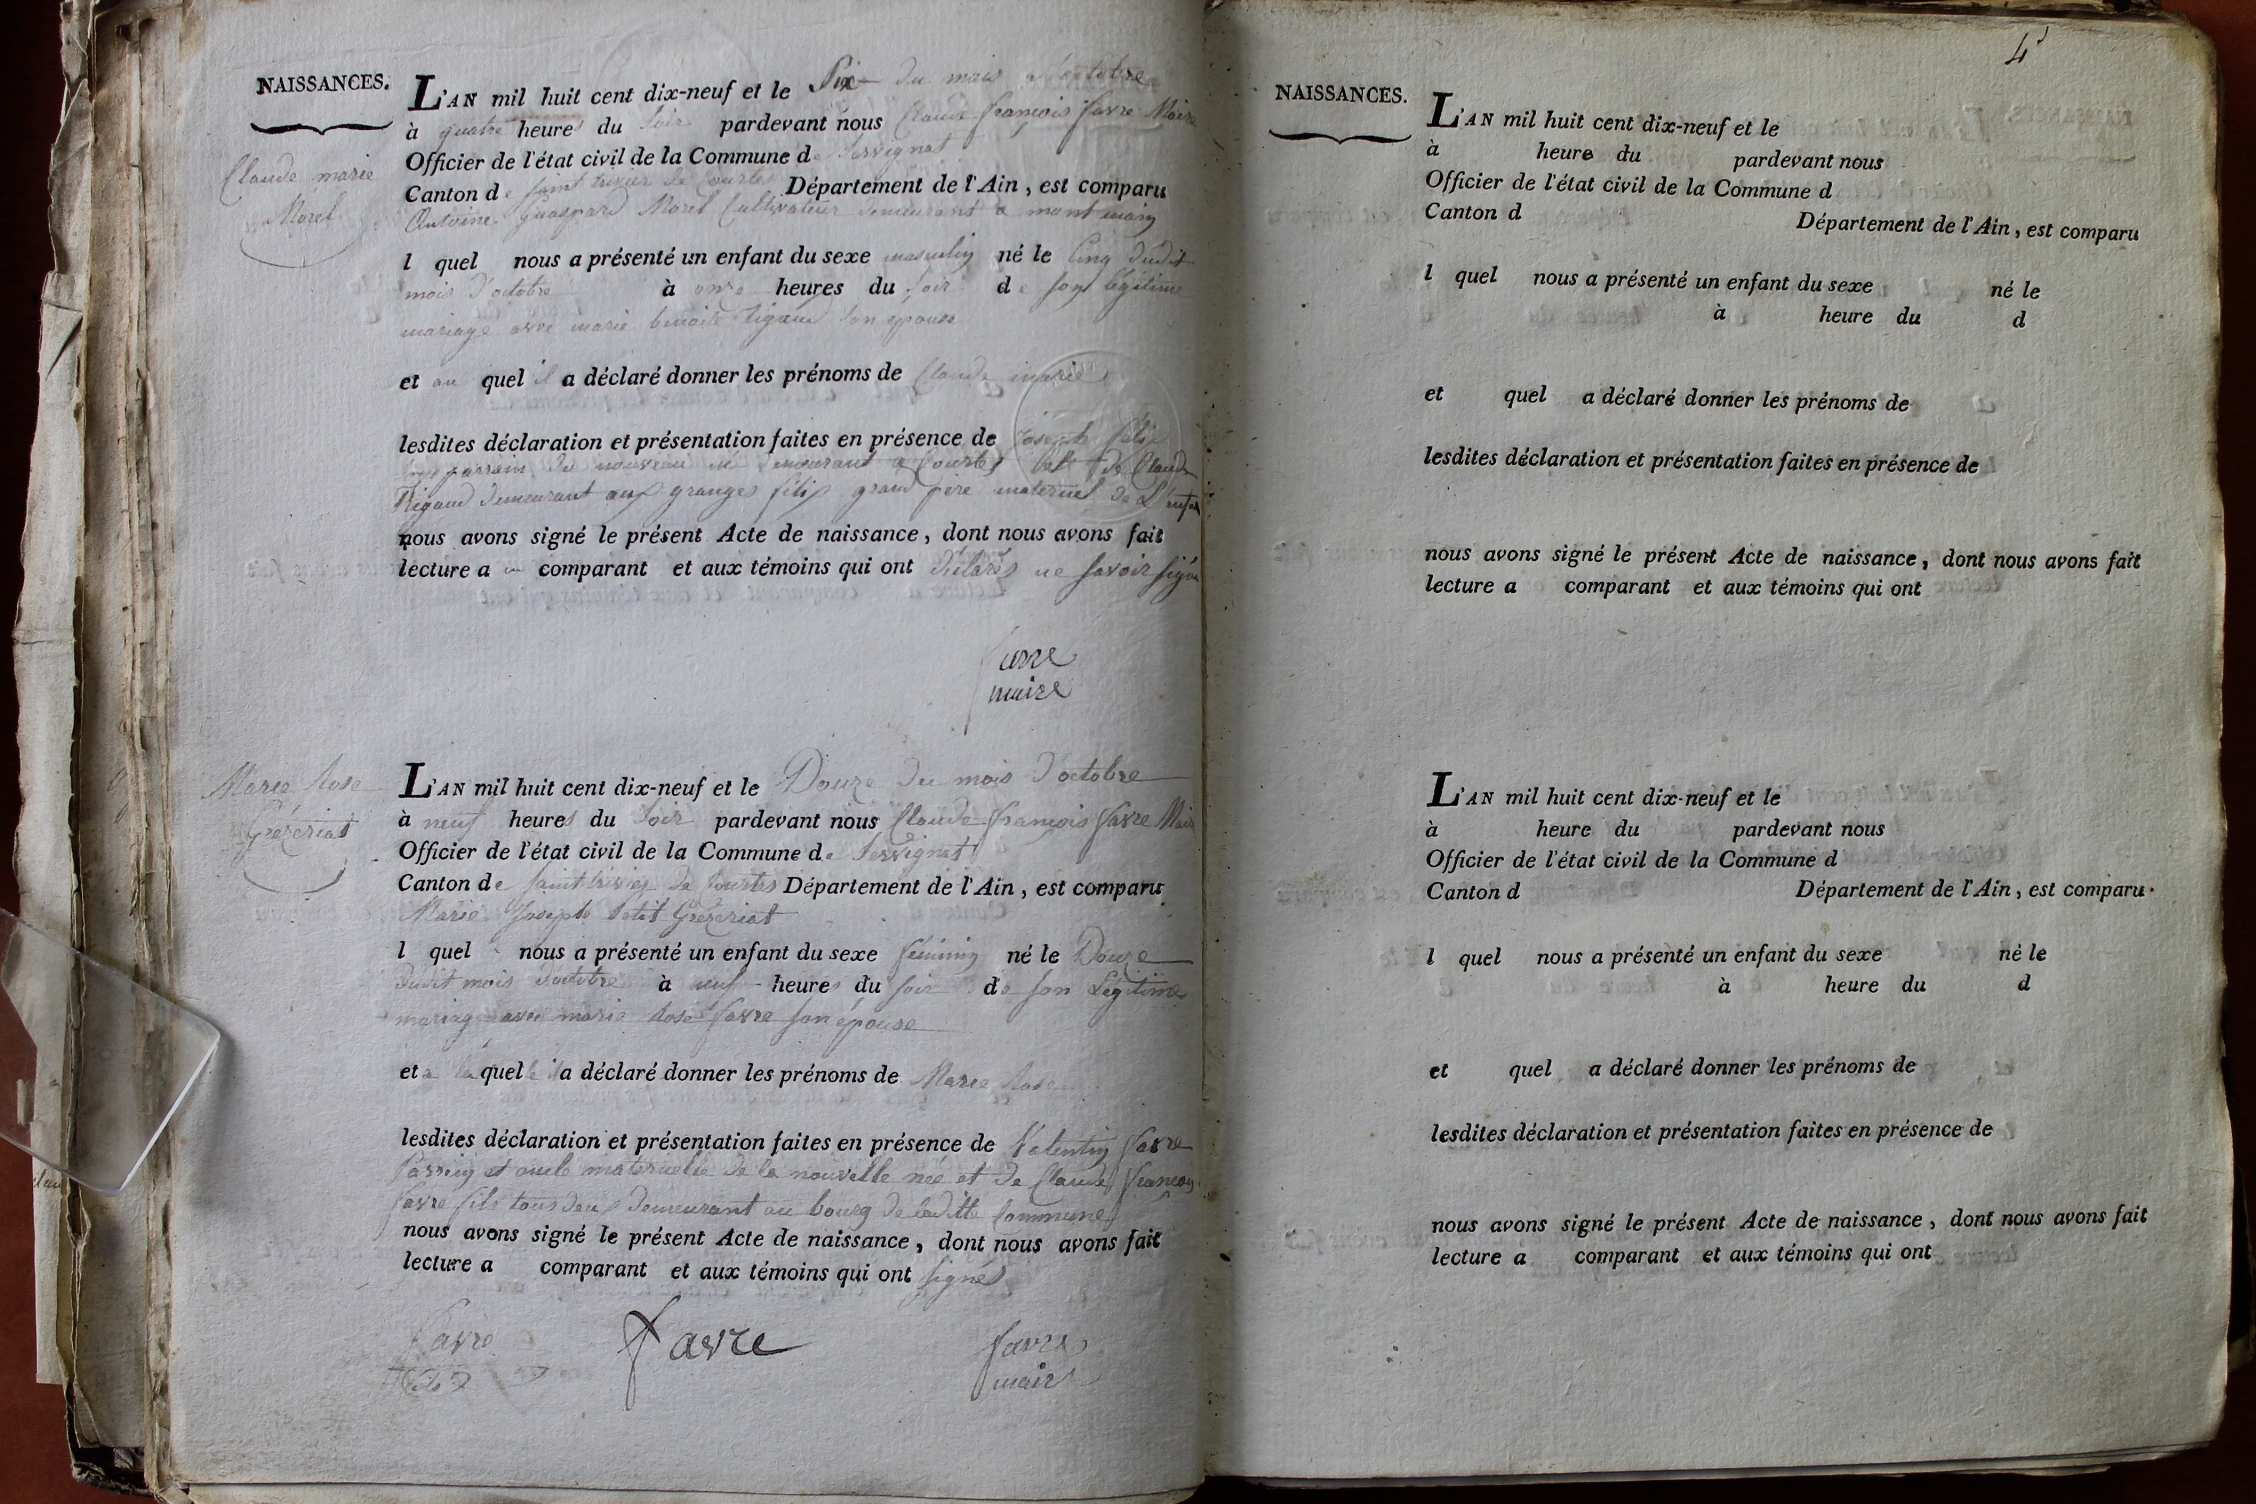 NAISSANCES.
Claude marie
Morel
L'AN mil huit cent dix-neuf et le Six du mois d'octobre
à quatre heures du Soir pardevant nous Claude françois favre Maire
Officier de l'état civil de la Commune de Servignat
Canton de Saint trivier de Courtes Département de l'Ain, est comparu
Antoine Guaspard Morel Cultivateur demeurant a mont main
l quel nous a présenté un enfant du sexe masculin né le Cinq dudit
mois d'octobre à onze heures du soir de son légitime
mariage avec marie benoite Rigaud son epouse
et au quel il a déclaré donner les prénoms de Claude marie
lesdites déclaration et présentation faites en présence de Joseph
parrain du nouveau né demeurant a Courtes et de Claude
Rigaud demeurant aux granges grand pere maternel de L'enfant
nous avons signé le présent Acte de naissance, dont nous avons fait
lecture a u comparant et aux témoins qui ont déclarés ne savoir signer
favre
maire
Marie Rose
Grézeriat
L'AN mil huit cent dix-neuf et le Douze du mois d'octobre
à neuf heures du Soir pardevant nous Claude françois favre Maire
Officier de l'état civil de la Commune de Servignat
Canton de Saint trivier de Courtes Département de l'Ain, est comparu
Marie Joseph Petit Grezeriat
l quel nous a présenté un enfant du sexe féminin né le Douze
dudit mois d'octobre à neuf heures du soir de son Légitime
mariage avec marie Rose favre son épouse
et a la quelle il a déclaré donner les prénoms de Marie Rose
lesdites déclaration et présentation faites en présence de Valentin favre
Parrain et oncle maternelle de la nouvelle née et de Claude François
favre fils tous deux demeurant au bourg de laditte Commune
nous avons signé le présent Acte de naissance, dont nous avons fait
lecture a comparant et aux témoins qui ont signés
favre
favre
favre
maire
4
NAISSANCES.
L'AN mil huit cent dix-neuf et le
à heure du pardevant nous
Officier de l'état civil de la Commune d
Canton d Département de l'Ain, est comparu
l quel nous a présenté un enfant du sexe né le
à heure du d
et quel a déclaré donner les prénoms de
lesdites déclaration et présentation faites en présence de
nous avons signé le présent Acte de naissance, dont nous avons fait
lecture a comparant et aux témoins qui ont
L'AN mil huit cent dix-neuf et le
à heure du pardevant nous
Officier de l'état civil de la Commune d
Canton d Département de l'Ain, est comparu
l quel nous a présenté un enfant du sexe né le
à heure du d
et quel a déclaré donner les prénoms de
lesdites déclaration et présentation faites en présence de
nous avons signé le présent Acte de naissance, dont nous avons fait
lecture a comparant et aux témoins qui ont